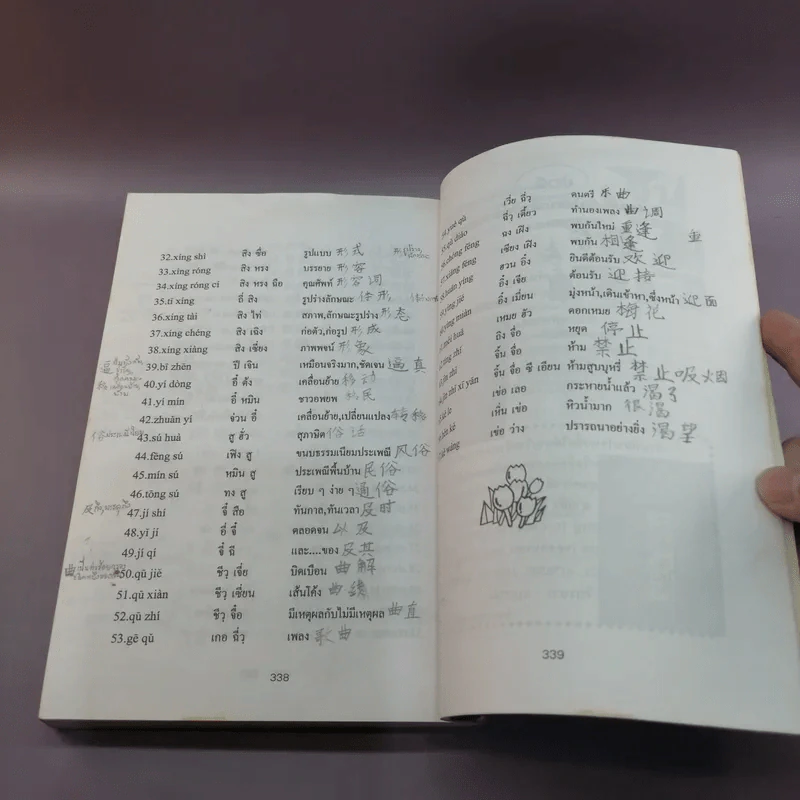 32.xíng shì สิง ซื่อ รูปแบบ 形式
33.xíng róng สิง หรง บรรยาย 形容
34.xíng róng cí สิง หรง ฉือ คุณศัพท์ 形容词
35.tǐ xíng ถี่ สิง รูปร่างลักษณะ 体形
36.xíng tài สิง ไท่ สภาพ,ลักษณะรูปร่าง 形态
37.xíng chéng สิง เฉิง ก่อตัว,ก่อรูป 形成
38.xíng xiàng สิง เซี่ยง ภาพพจน์ 形象
39.bī zhēn ปี เจิน เหมือนจริงมาก,ชัดเจน 逼真
40.yí dòng อี๋ ตั้ง เคลื่อนย้าย 移动
41.yí mín อี๋ หมิน ชาวอพยพ 民
42.zhuǎn yí จ่วน อี๋ เคลื่อนย้าย,เปลี่ยนแปลง 转移
43.sú huà สู ฮั่ว สุภาษิต 俗话
44.fēng sú เฟิง สู ขนบธรรมเนียมประเพณี 风俗
45.mín sú หมิน สู ประเพณีพื้นบ้าน 民俗
46.tōng sú ทง สู เรียบ ๆ ง่าย ๆ 通俗
47.jí shí จี๋ สือ ทันกาล,ทันเวลา 及时
48.yǐ jí อี่ จี๋ ตลอดจน 以及
49.jí qí จี๋ ฉี และ....ของ 及其
50.qū jiě ชีวฺ เจี่ย บิดเบือน 曲解
51.qū xiàn ชีวฺ เซี่ยน เส้นโค้ง 曲线
52.qū zhí ชีวฺ จื๋อ มีเหตุผลกับไม่มีเหตุผล 曲直
53.gē qǔ เกอ ฉี่วฺ เพลง 歌曲
338
เวี่ย ฉี่วฺ ดนตรี 曲
qǔ diào ฉี่วฺ เตี้ยว ทำนองเพลง 曲调
chóng féng ฉง เฝิง พบกันใหม่ 重逢
xiāng féng เซียง เฝิง พบกัน 相逢
huān yíng ฮวน อิ๋ง ยินดีต้อนรับ 欢迎
yíng jiē อิ๋ง เจีย ต้อนรับ 迎接
yíng miàn อิ๋ง เมี่ยน มุ่งหน้า,เดินเข้าหา,ซึ่งหน้า 迎面
méi huā เหมย ฮัว ดอกเหมย 梅花
tíng zhǐ ถิง จื่อ หยุด 停止
jìn zhǐ จิ้น จื่อ ห้าม 禁止
jìn zhǐ xī yān จิ้น จื่อ ซี เอียน ห้ามสูบบุหรี่ 禁止吸烟
kě le เข่อ เลอ กระหายน้ำแล้ว 渴了
hěn kě เหิ่น เข่อ หิวน้ำมาก 很渴
kě wàng เข่อ ว่าง ปรารถนาอย่างยิ่ง 渴望
339